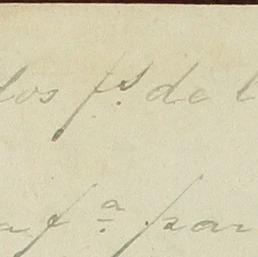 los fs. de l
a fª par